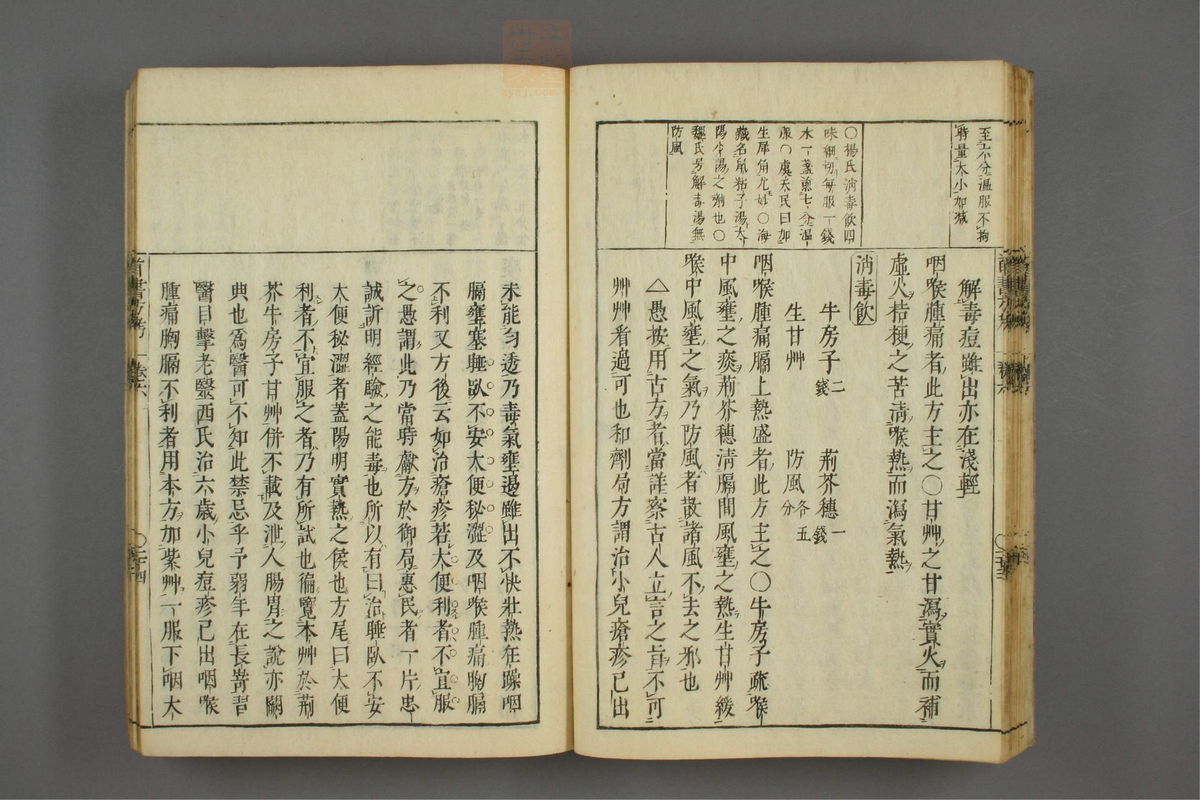 至六分溫服不拘
時量大小加減
〇楊氏消毒飲四
味細切每服一錢
水一盞煎七分溫
服〇虞天民曰加
生犀角尤妙〇海
藏名鼠粘子湯太
陽少陽之劑也〇
魏氏另解毒湯無
防風
解毒痘雖出亦在淺輕
咽喉腫痛者此方主之〇甘艸之甘瀉實火而補
虛火桔梗之苦淸喉熱而瀉氣熱
消毒飲
牛房子二錢 荊芥穗一錢
生甘艸 防風各五分
咽喉腫痛膈上熱盛者此方主之〇牛房子疏喉
中風壅之痰荊芥穗淸膈間風壅之熱生甘艸緩
喉中風壅之氣乃防風者散諸風不去之邪也
△愚按用古方者當詳察古人立言之旨不可
艸艸看過可也和劑局方謂治小兒瘡疹已出
未能匀透乃毒氣壅遏雖出不快壯熱狂躁咽
膈壅塞睡臥不安大便秘澀及咽喉腫痛胸膈
不利又方後云如治瘡疹若大便利者不宜服
之愚謂此乃當時獻方於御局惠民者一片忠
誠訢明經驗之能毒也所以有曰治睡臥不安
大便秘澀者蓋陽明實熱之候也方尾曰大便
利者不宜服之者乃有所試也徧覽本艸於荊
芥牛房子甘艸併不載及泄人腸胃之說亦闕
典也爲醫可不知此禁忌乎予弱年在長嵜
醫目擊老醫西氏治六歲小兒痘疹已出咽喉
腫痛胸膈不利者用本方加紫艸一服下咽大